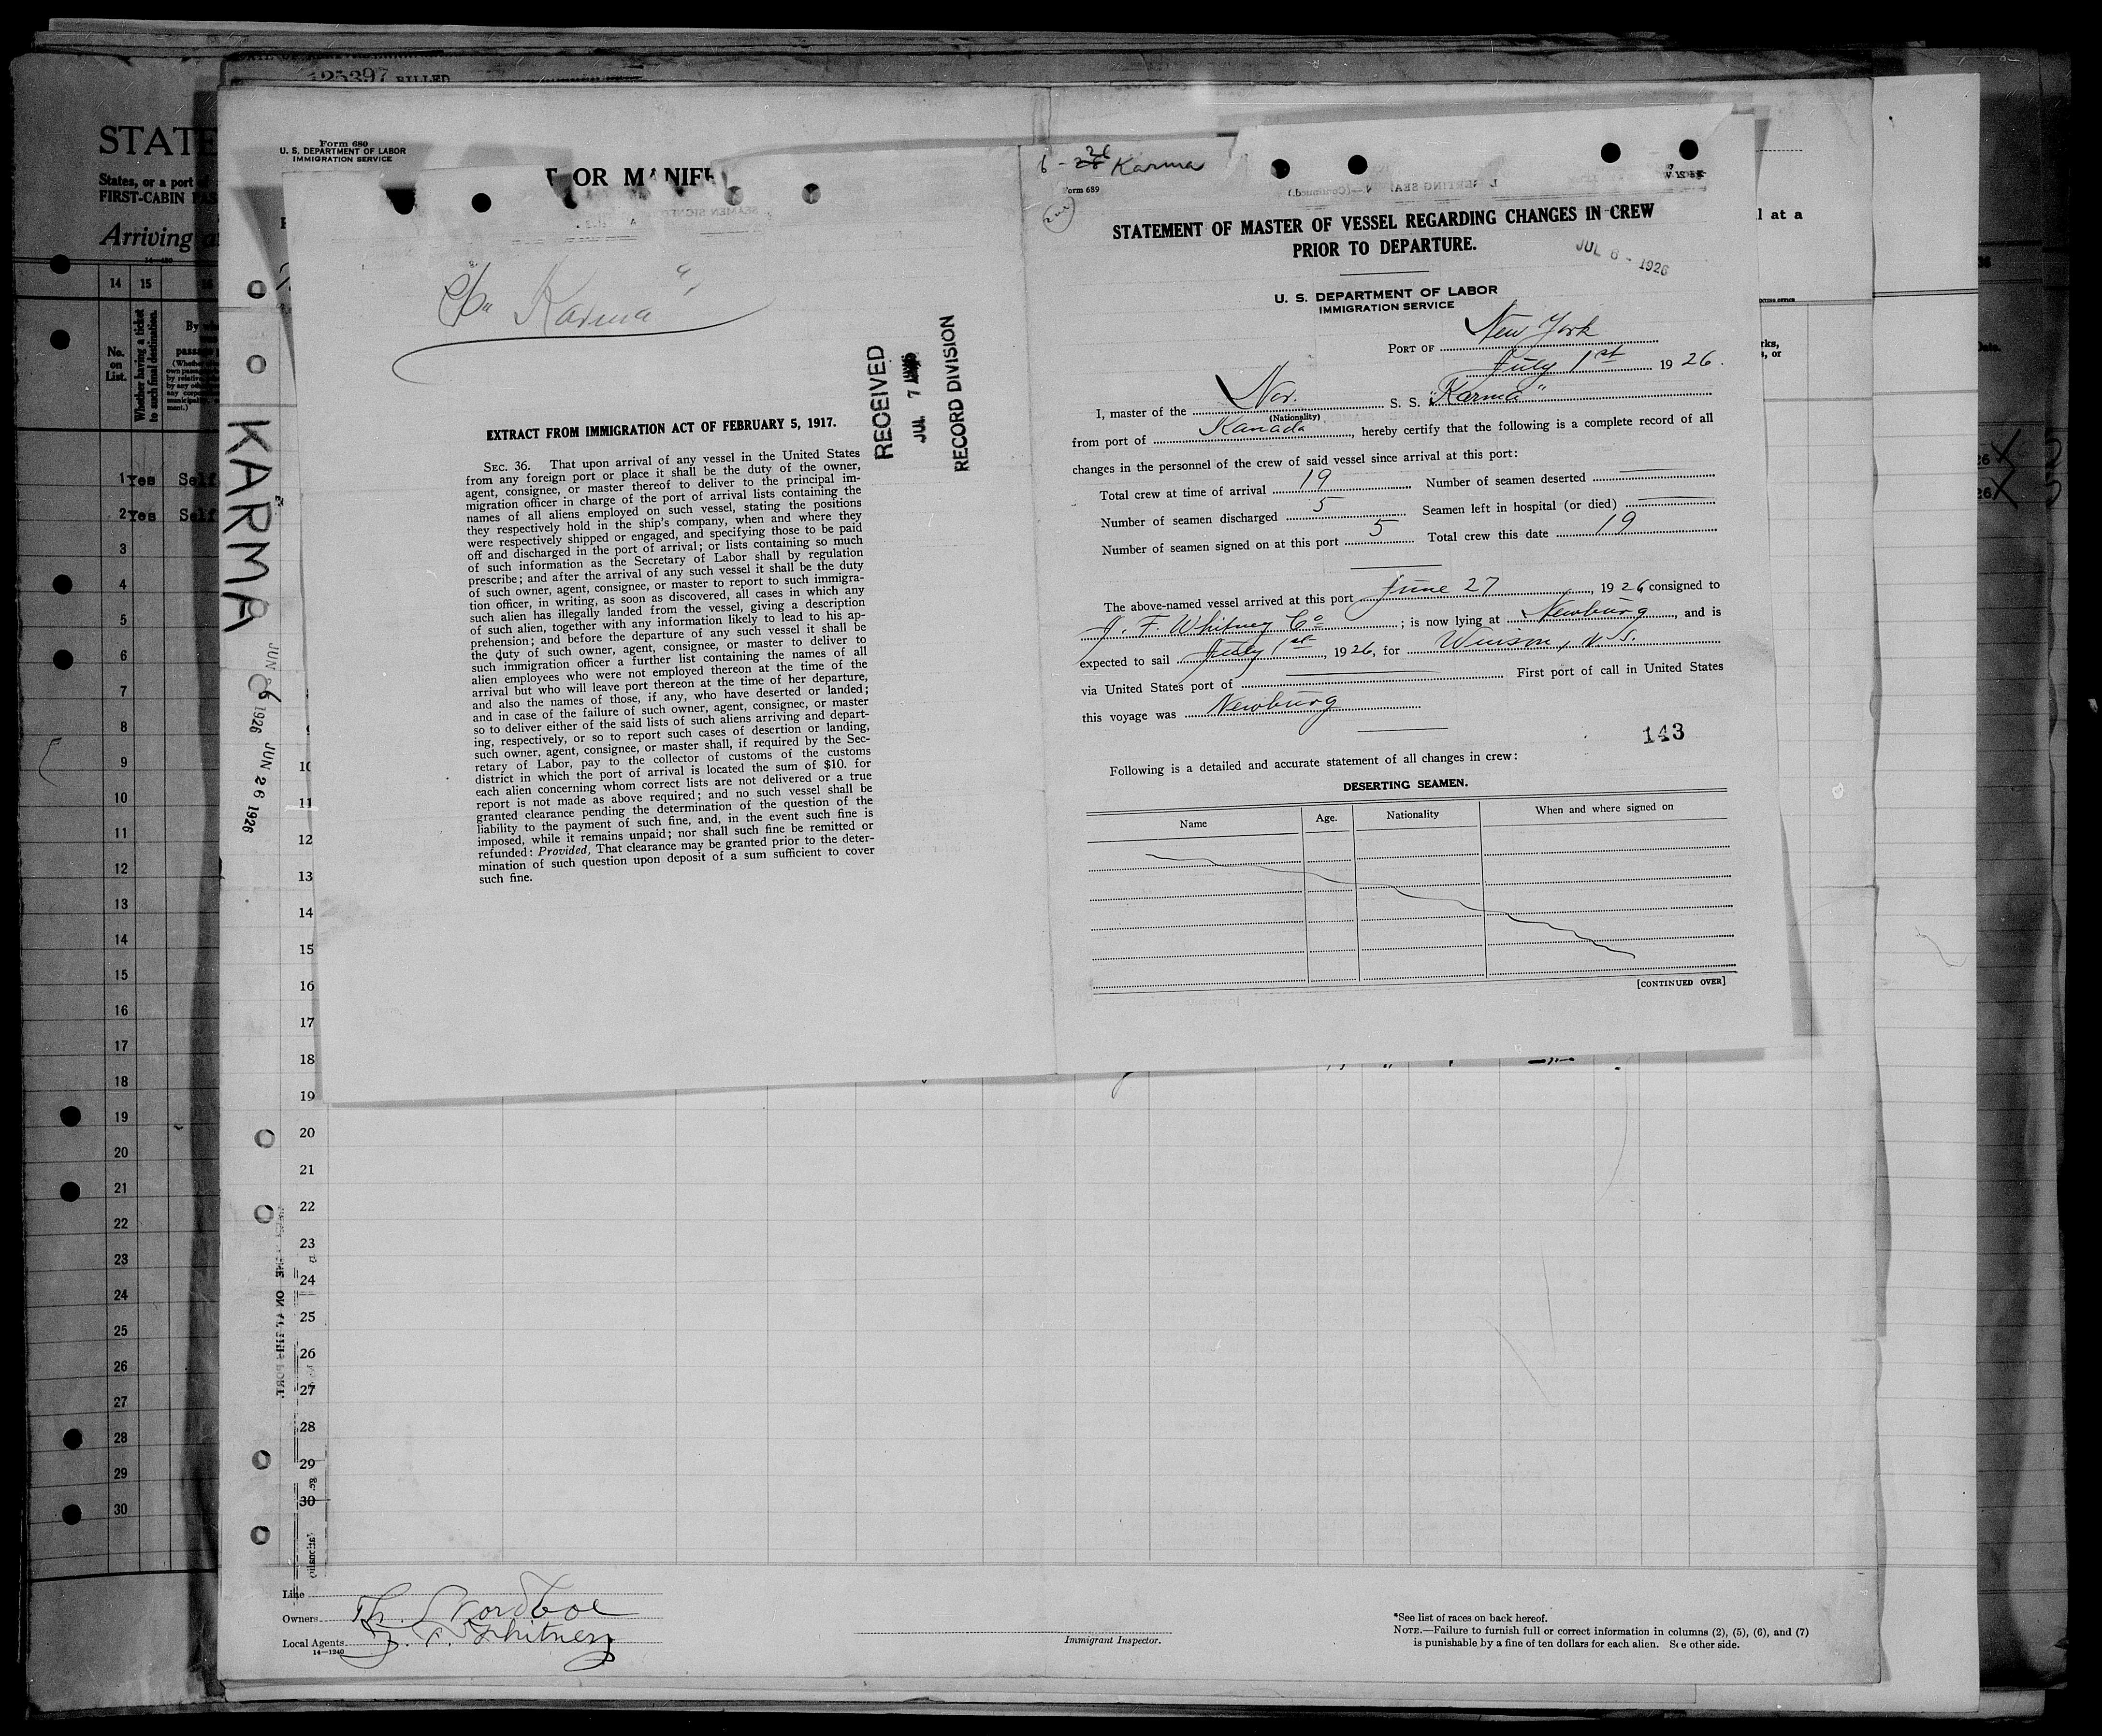 25397 BILLED
STATE
States, or a port
FIRST-CABIN PAS
Arriving a
14 15 16
No. on List.
Whether having a ticket to such final destination.
By wh
passage
1 Yes Self
2 Yes Self
3
4
5
6
7
8
9
10
11
12
13
14
15
16
17
18
19
20
21
22
23
24
25
26
27
28
29
30
KARMA
JUN 26 1926
Form 680
U. S. DEPARTMENT OF LABOR
IMMIGRATION SERVICE
T OR MANIF
S/S "Karma"
RECEIVED
JUL 7
RECORD DIVISION
EXTRACT FROM IMMIGRATION ACT OF FEBRUARY 5, 1917.
SEC. 36. That upon arrival of any vessel in the United States
from any foreign port or place it shall be the duty of the owner,
agent, consignee, or master thereof to deliver to the principal im-
migration officer in charge of the port of arrival lists containing the
names of all aliens employed on such vessel, stating the positions
they respectively hold in the ship's company, when and where they
were respectively shipped or engaged, and specifying those to be paid
off and discharged in the port of arrival; or lists containing so much
of such information as the Secretary of Labor shall by regulation
prescribe; and after the arrival of any such vessel it shall be the duty
of such owner, agent, consignee, or master to report to such immigra-
tion officer, in writing, as soon as discovered, all cases in which any
such alien has illegally landed from the vessel, giving a description
of such alien, together with any information likely to lead to his ap-
prehension; and before the departure of any such vessel it shall be
the duty of such owner, agent, consignee, or master to deliver to
such immigration officer a further list containing the names of all
alien employees who were not employed thereon at the time of the
arrival but who will leave port thereon at the time of her departure,
and also the names of those, if any, who have deserted or landed;
and in case of the failure of such owner, agent, consignee, or master
so to deliver either of the said lists of such aliens arriving and depart-
ing, respectively, or so to report such cases of desertion or landing,
such owner, agent, consignee, or master shall, if required by the Sec-
retary of Labor, pay to the collector of customs of the customs
district in which the port of arrival is located the sum of $10. for
each alien concerning whom correct lists are not delivered or a true
report is not made as above required; and no such vessel shall be
granted clearance pending the determination of the question of the
liability to the payment of such fine, and, in the event such fine is
imposed, while it remains unpaid; nor shall such fine be remitted or
refunded: Provided, That clearance may be granted prior to the deter-
mination of such question upon deposit of a sum sufficient to cover
such fine.
6-26 Karma
Form 689
STATEMENT OF MASTER OF VESSEL REGARDING CHANGES IN CREW
PRIOR TO DEPARTURE.
JUL 6 - 1926
U. S. DEPARTMENT OF LABOR
IMMIGRATION SERVICE
PORT OF New York
July 1st 1926.
I, master of the Nor. S. S. "Karma"
(Nationality)
from port of Kanada, hereby certify that the following is a complete record of all
changes in the personnel of the crew of said vessel since arrival at this port:
Total crew at time of arrival 19 Number of seamen deserted
Number of seamen discharged 5 Seamen left in hospital (or died)
Number of seamen signed on at this port 5 Total crew this date 19
The above-named vessel arrived at this port June 27, 1926 consigned to
J. F. Whitney Co; is now lying at Newburg, and is
expected to sail July 1st, 1926, for Winson, N.S.
via United States port of First port of call in United States
this voyage was Newburg
143
Following is a detailed and accurate statement of all changes in crew:
DESERTING SEAMEN.
Name Age. Nationality When and where signed on
[CONTINUED OVER]
l at a
10
11
12
13
14
15
16
17
18
19
20
21
22
23
24
25
26
27
28
29
30
Line
Owners Th.
Local Agents J. F. Whitney
14-1240
Immigrant Inspector.
*See list of races on back hereof.
NOTE.—Failure to furnish full or correct information in columns (2), (5), (6), and (7)
is punishable by a fine of ten dollars for each alien. See other side.